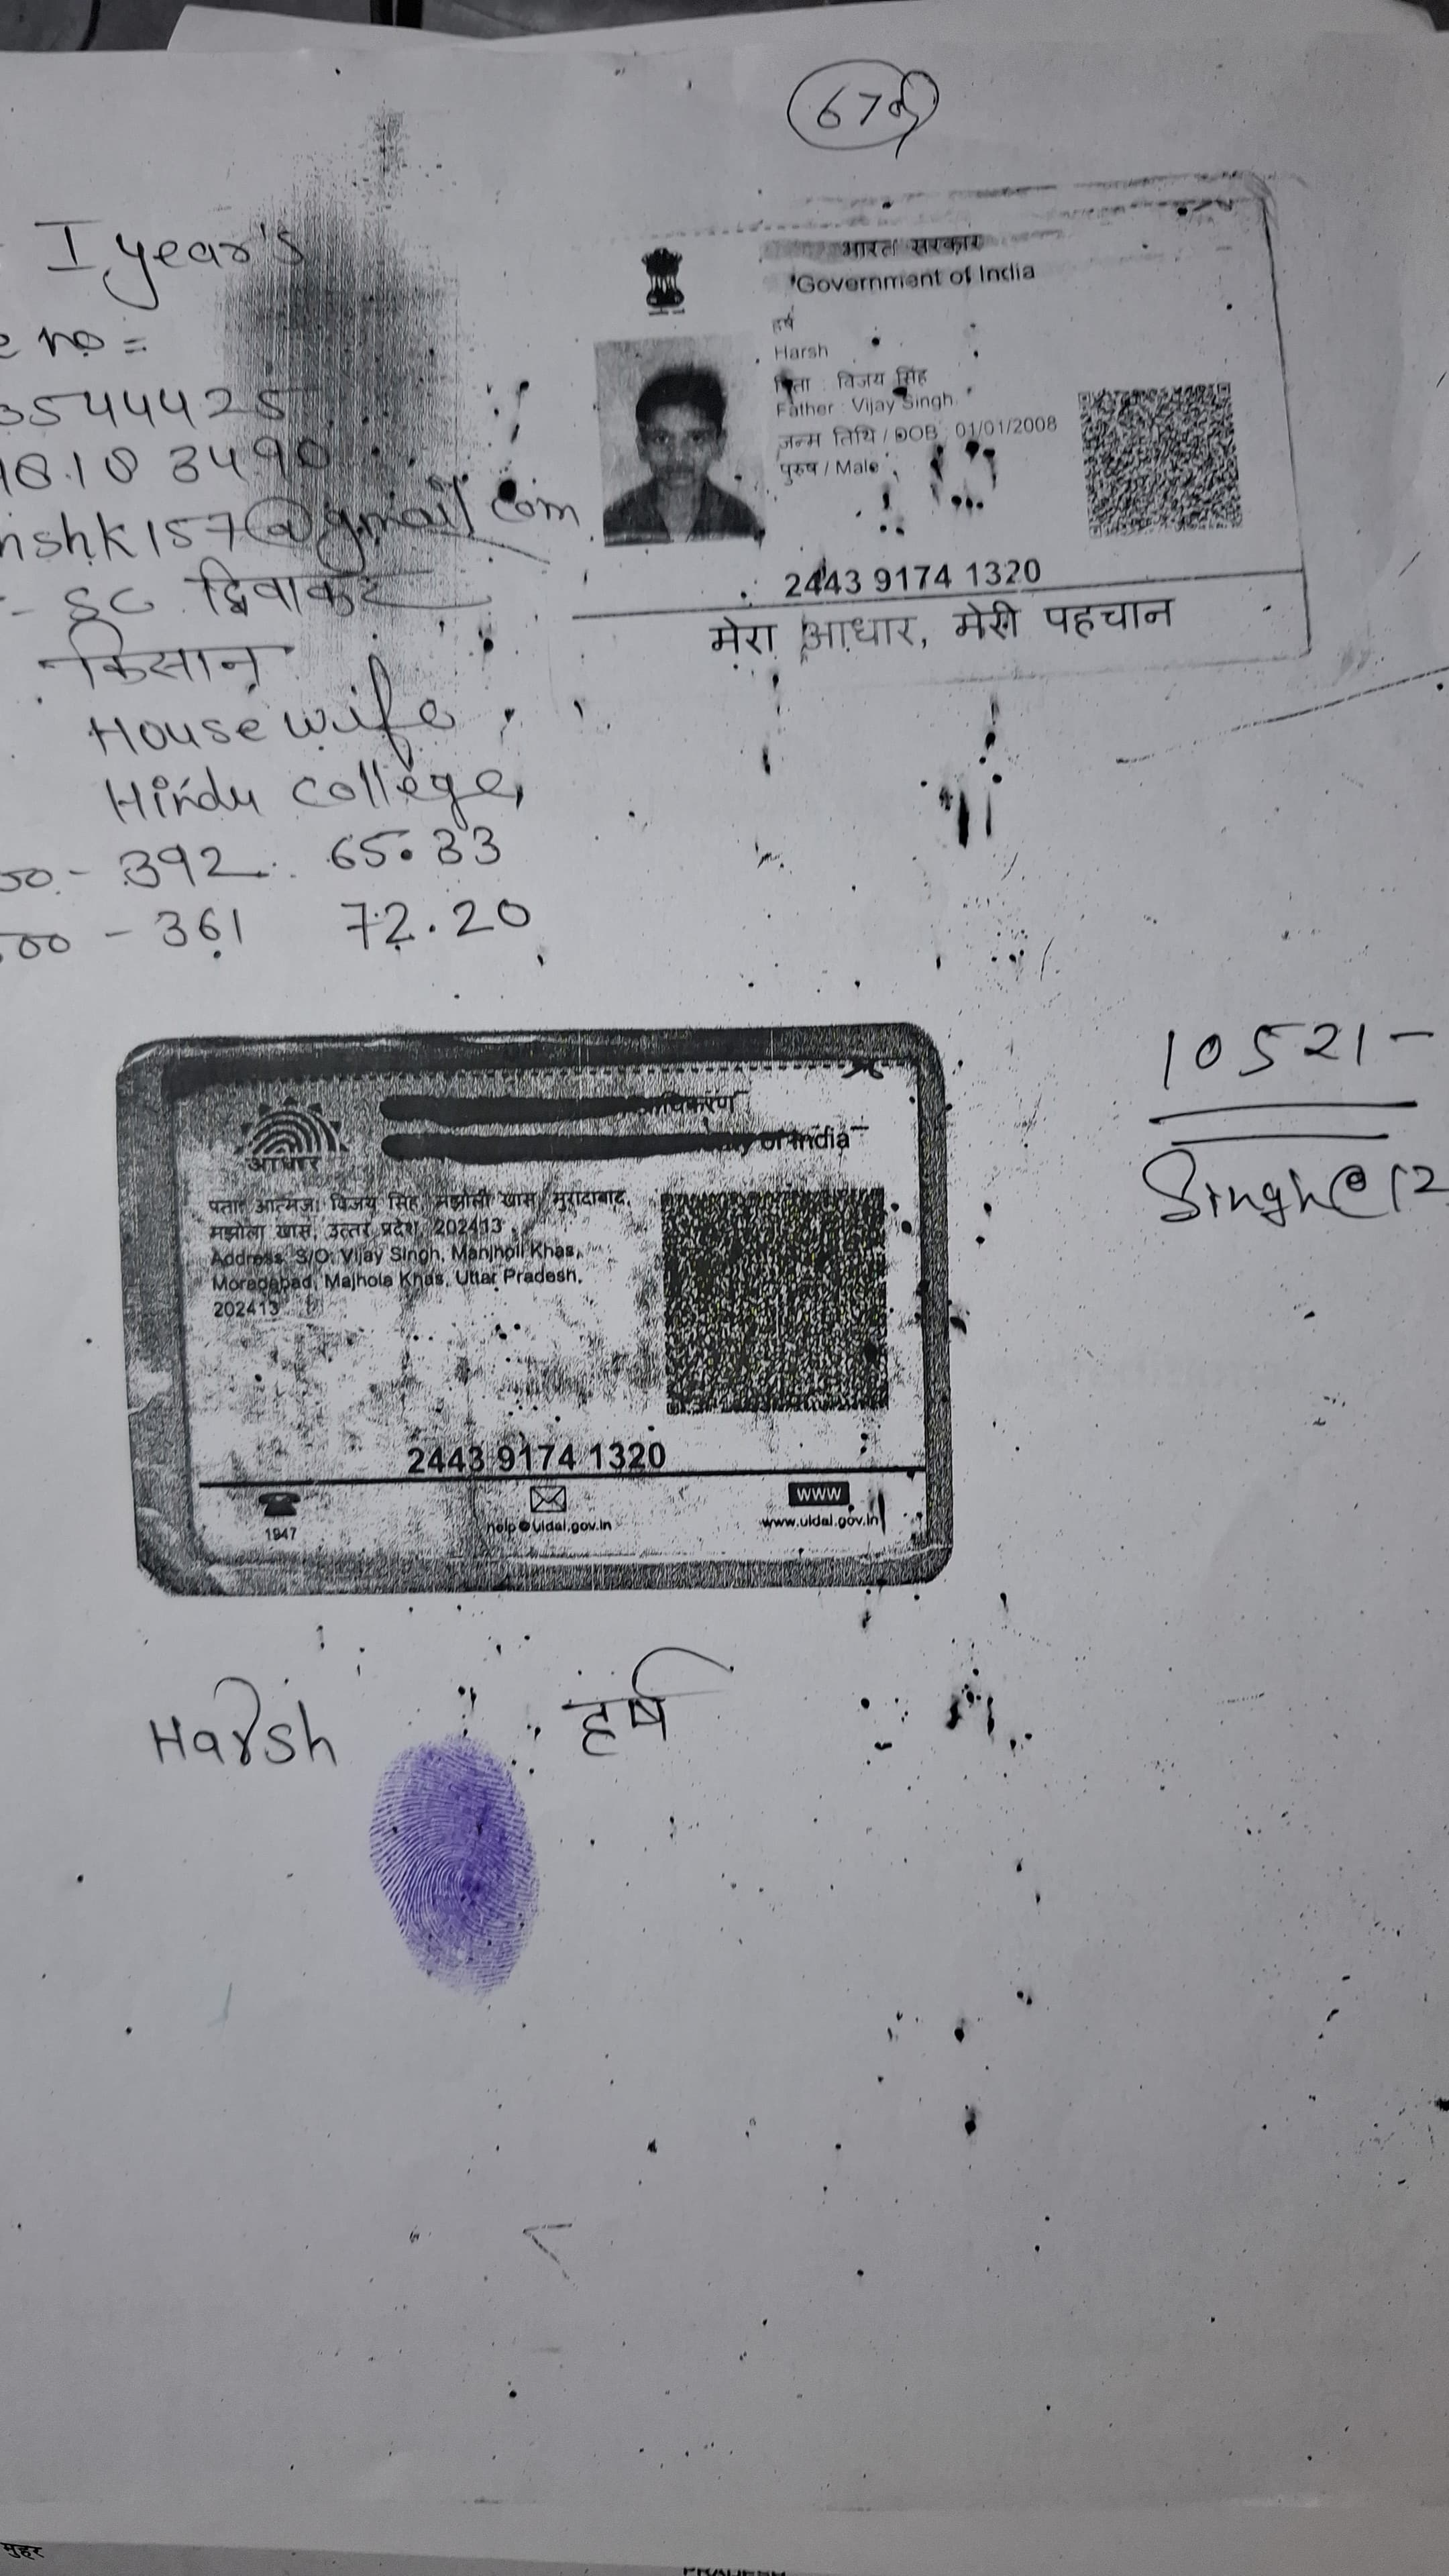 67
I year's
no =
3544425
3490
nshk157@gmail.com
SC दिवाकर
किसान
House wife
Hindu college,
392 65.33
00 - 361 72.20
भारत सरकार
Government of India
हर्ष
Harsh
पिता : विजय सिंह
Father : Vijay Singh
जन्म तिथि / DOB : 01/01/2008
पुरुष / Male
2443 9174 1320
मेरा आधार, मेरी पहचान
10521-
Singh@12
आधार
of India
पता: आत्मज: विजय सिंह, मझोली खास, मुरादाबाद,
मझोला खास, उत्तर प्रदेश, 202413
Address: S/O: Vijay Singh, Manjholi Khas,
Moradabad, Majhola Khas, Uttar Pradesh,
202413
2443 9174 1320
1947
help@uidai.gov.in
www
www.uidai.gov.in
Harsh हर्ष
मुहर